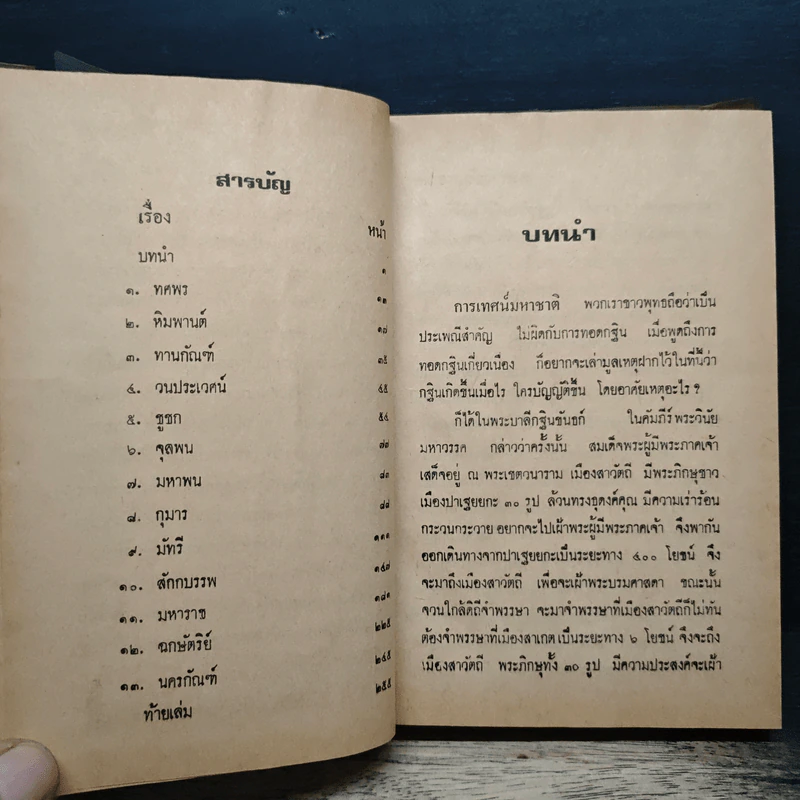 สารบัญ
เรื่อง
หน้า
บทนำ ๑
๑. ทศพร ๑๒
๒. หิมพานต์ ๑๗
๓. ทานกัณฑ์ ๓๕
๔. วนประเวศน์ ๔๕
๕. ชูชก ๕๔
๖. จุลพน ๗๗
๗. มหาพน ๘๓
๘. กุมาร ๘๘
๙. มัทรี ๑๑๑
๑๐. สักกบรรพ ๑๔๗
๑๑. มหาราช ๑๘๑
๑๒. ฉกษัตริย์ ๒๒๕
๑๓. นครกัณฑ์ ๒๔๕
ท้ายเล่ม ๒๕๕
บทนำ
การเทศน์มหาชาติ พวกเราชาวพุทธถือว่าเป็น
ประเพณีสำคัญ ไม่ผิดกับการทอดกฐิน เมื่อพูดถึงการ
ทอดกฐินเกี่ยวเนื่อง ก็อยากจะเล่ามูลเหตุฝากไว้ในที่นี้ว่า
กฐินเกิดขึ้นเมื่อไร ใครบัญญัติขึ้น โดยอาศัยเหตุอะไร ?
ก็ได้ในพระบาลีกฐินขันธก์ ในคัมภีร์พระวินัย
มหาวรรค กล่าวว่าครั้งนั้น สมเด็จพระผู้มีพระภาคเจ้า
เสด็จอยู่ ณ พระเชตวนาราม เมืองสาวัตถี มีพระภิกษุชาว
เมืองปาเฐยยกะ ๓๐ รูป ล้วนทรงธุดงค์คุณ มีความเร่าร้อน
กระวนกระวาย อยากจะไปเฝ้าพระผู้มีพระภาคเจ้า จึงพากัน
ออกเดินทางจากปาเฐยยกะเป็นระยะทาง ๔๐๐ โยชน์ จึง
จะมาถึงเมืองสาวัตถี เพื่อจะเฝ้าพระบรมศาสดา ขณะนั้น
จวนใกล้ดิถีจำพรรษา จะมาจำพรรษาที่เมืองสาวัตถีก็ไม่ทัน
ต้องจำพรรษาที่เมืองสาเกต เป็นระยะทาง ๖ โยชน์ จึงจะถึง
เมืองสาวัตถี พระภิกษุทั้ง ๓๐ รูป มีความประสงค์จะเฝ้า